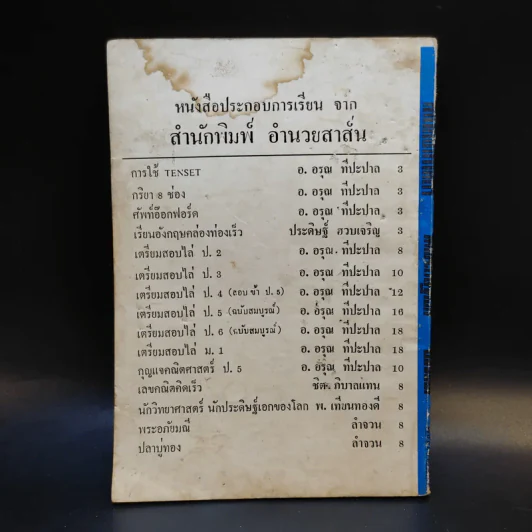 หนังสือประกอบการเรียน จาก
สำนักพิมพ์ อำนวยสาส์น
การใช้ TENSET อ. อรุณ ทีปะปาล 3
กริยา 8 ช่อง อ. อรุณ ทีปะปาล 3
ศัพท์อ๊อกฟอร์ด อ. อรุณ ทีปะปาล 3
เรียนอังกฤษคล่องท่องเร็ว ประดิษฐ์ ฮวบเจริญ 3
เตรียมสอบไล่ ป. 2 อ. อรุณ ทีปะปาล 8
เตรียมสอบไล่ ป. 3 อ. อรุณ ทีปะปาล 10
เตรียมสอบไล่ ป. 4 (สอบเข้า ป. 5) อ. อรุณ ทีปะปาล 12
เตรียมสอบไล่ ป. 5 (ฉบับสมบูรณ์) อ. อรุณ ทีปะปาล 16
เตรียมสอบไล่ ป. 6 (ฉบับสมบูรณ์) อ. อรุณ ทีปะปาล 18
เตรียมสอบไล่ ม. 1 อ. อรุณ ทีปะปาล 18
กุญแจคณิตศาสตร์ ป. 5 อ. อรุณ ทีปะปาล 10
เลขคณิตคิดเร็ว ชิต ภิบาลแทน 8
นักวิทยาศาสตร์ นักประดิษฐ์เอกของโลก พ. เทียนทองดี 8
พระอภัยมณี ลำจวน 8
ปลาบู่ทอง ลำจวน 8